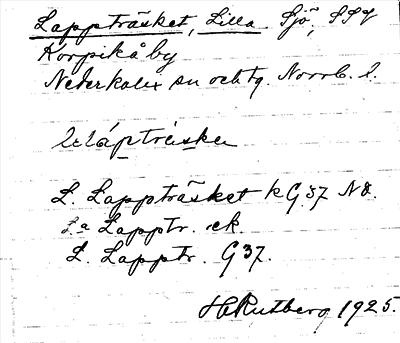 Lappträsket, Lilla Sjö, SSV
Korpikå by
Nederkalix sn och tg. Norrb. l.
L. Lappträsket k G 37 NO.
L:a Lapptr. ek.
L. Lapptr. G 37.
H Rutberg 1925.